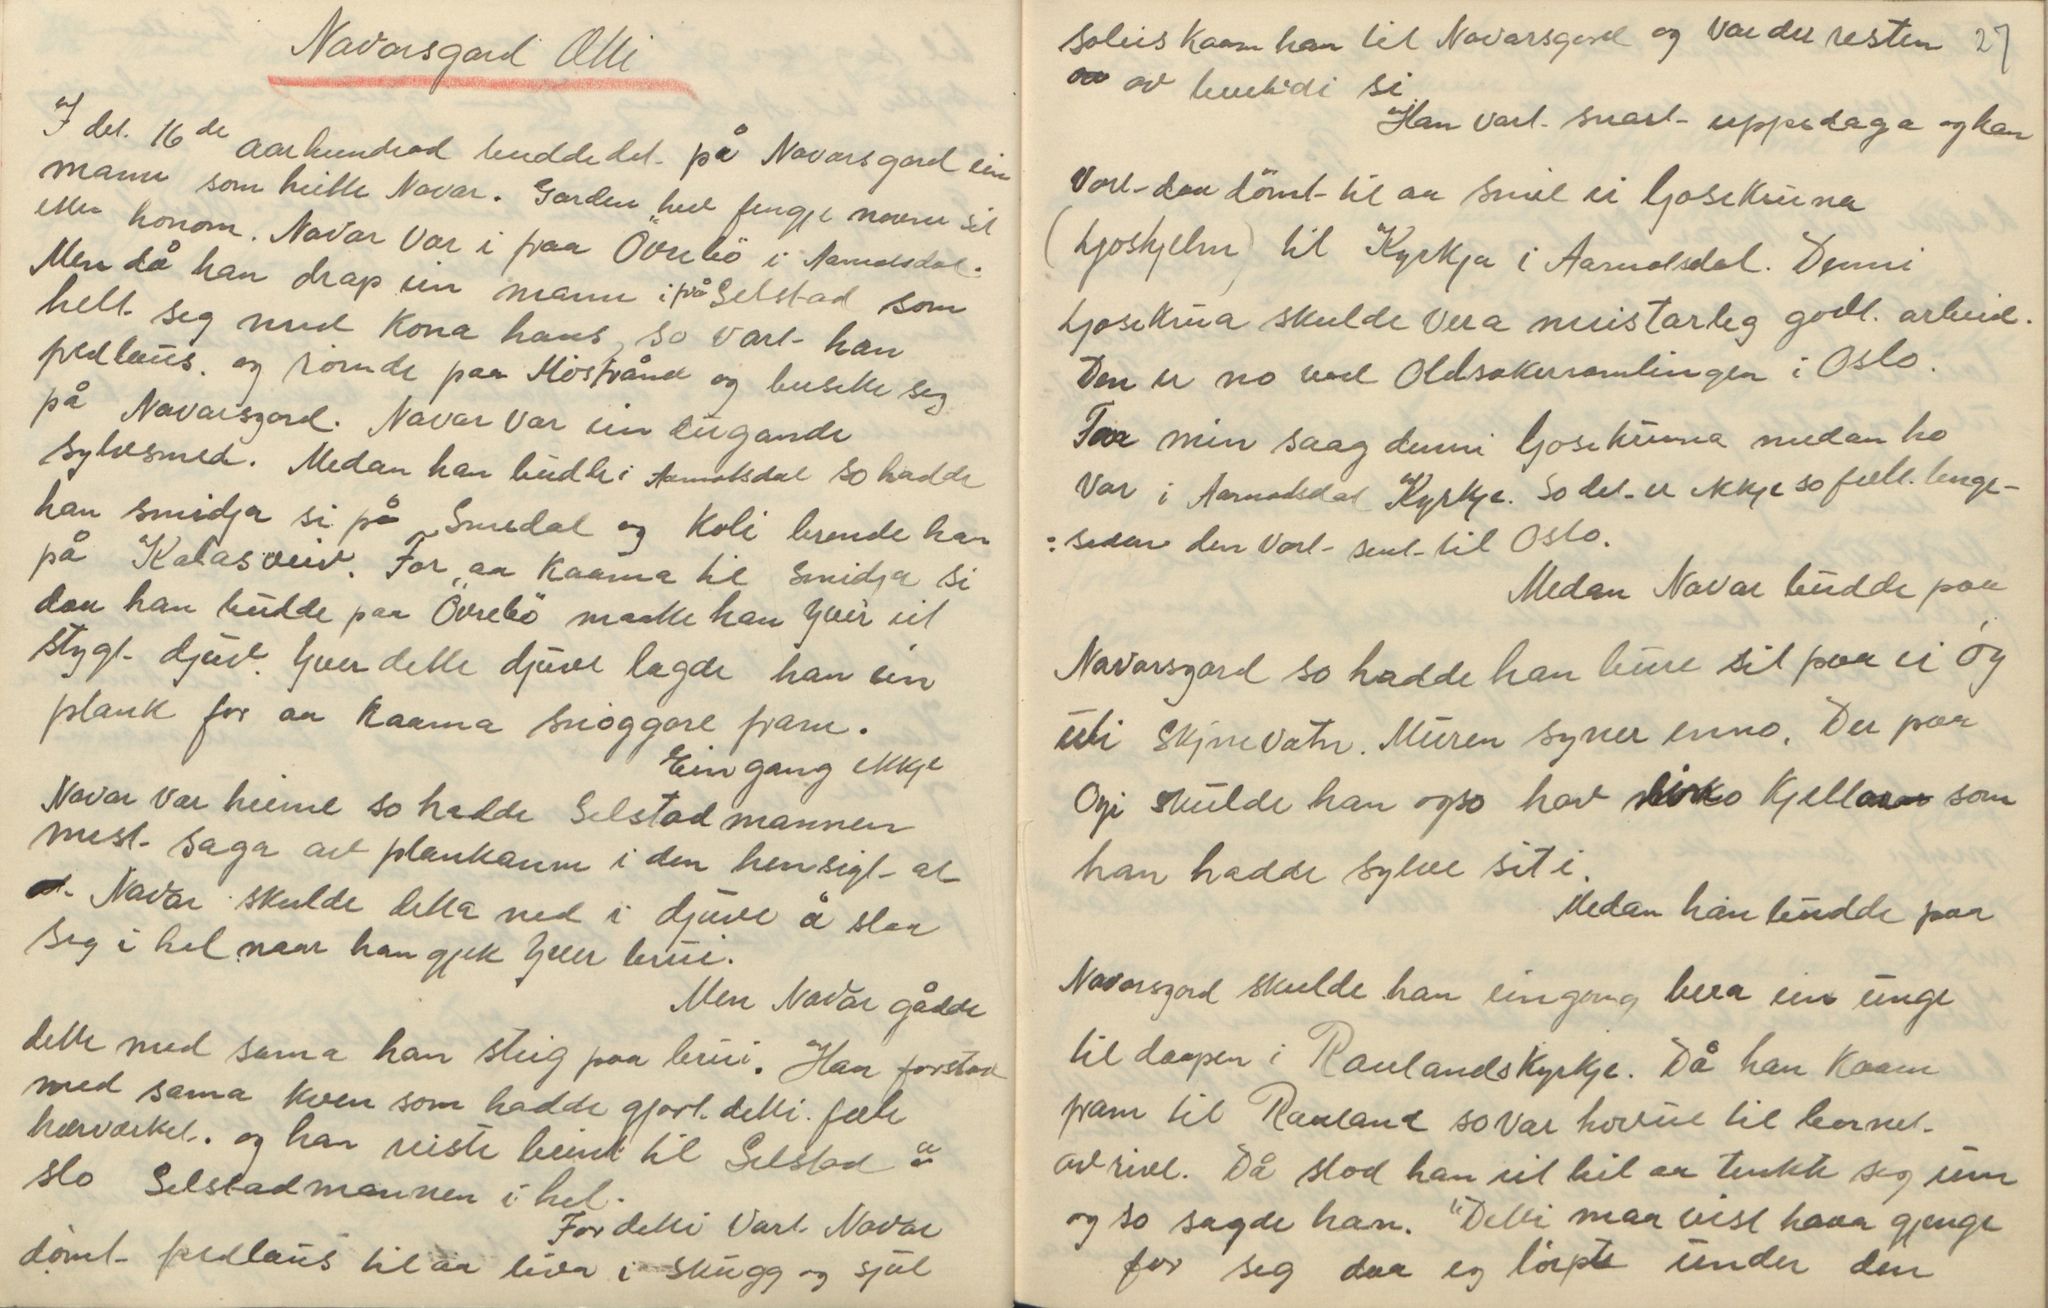 Navarsgard Ætti
I det 16de aarhundrad budde det på Navarsgard ein
mann som heitte Navar. Garden hev fengje navne sit
etter honom. Navar var i fraa Övrebö i Aamotsdal.
Men då han drap ein mann ifrå Selstad som
helt seg med kona hans, so vart han
fredlaus. og römde paa Mösstrånd og busette seg
på Navarsgard. Navar var ein dugande
sylvsmed. Medan han budde i Aamotsdal so hadde
han smidja si på Smedal og koli brende han
på Kalasveiv. For aa kaama til smidja si
daa han budde paa Övrebö maatte han yver eit
stygt djuv. Yver dette djuve lagde han ein
plank for aa kaama snöggare fram.
Ein gang ikkje
Navar var heime so hadde Selstadmannen
mest saga av plankann i den hensigt at
Navar skulde detta ned i djuve å slaa
seg i hel naar han gjek yver brui.
Men Navar gådde
dette med sama han steig paa brui. Han forstod
med sama kven som hadde gjort detti fæle
hærverket. og han reiste beint til Selstad å
slo Selstadmannen i hel.
For detti vart Navar
dömt fredlaus til aa liva i skugg og sjul
27
soleis kaam han til Navarsgard og var der resten
av levetidi si
Han vart snart uppedaga og han
vart daa dömt til aa smie ei ljosekruna
(Ljoshjelm) til Kyrkja i Aamotsdal. Denni
Ljosekrua skulde vera meistarleg godt arbeid.
Den er no ved Oldsakersamlingen i Oslo.
Far min saag denni ljosekruna medan ho
var i Aamotsdal Kyrkje. So det er ikkje so fælt lenge-
:sedan den vart sent til Oslo.
Medan Navar budde paa
Navarsgard so hadde han bure sit paa ei öy
uti Skjnevatn. Muren syner enno. Der paa
Öyi skulde han ogso hav kjellar som
han hadde sylve sit i.
Medan han budde paa
Navarsgard skulde han eingong bera ein unge
til daapen i Raulandskyrkje. Då han kaam
fram til Rauland so var hovue til barnet
avrive. Då stod han eit bil aa tenkte seg um
og so sagde han. "Detti maa vist hava gjenge
for seg daa eg löipte under den